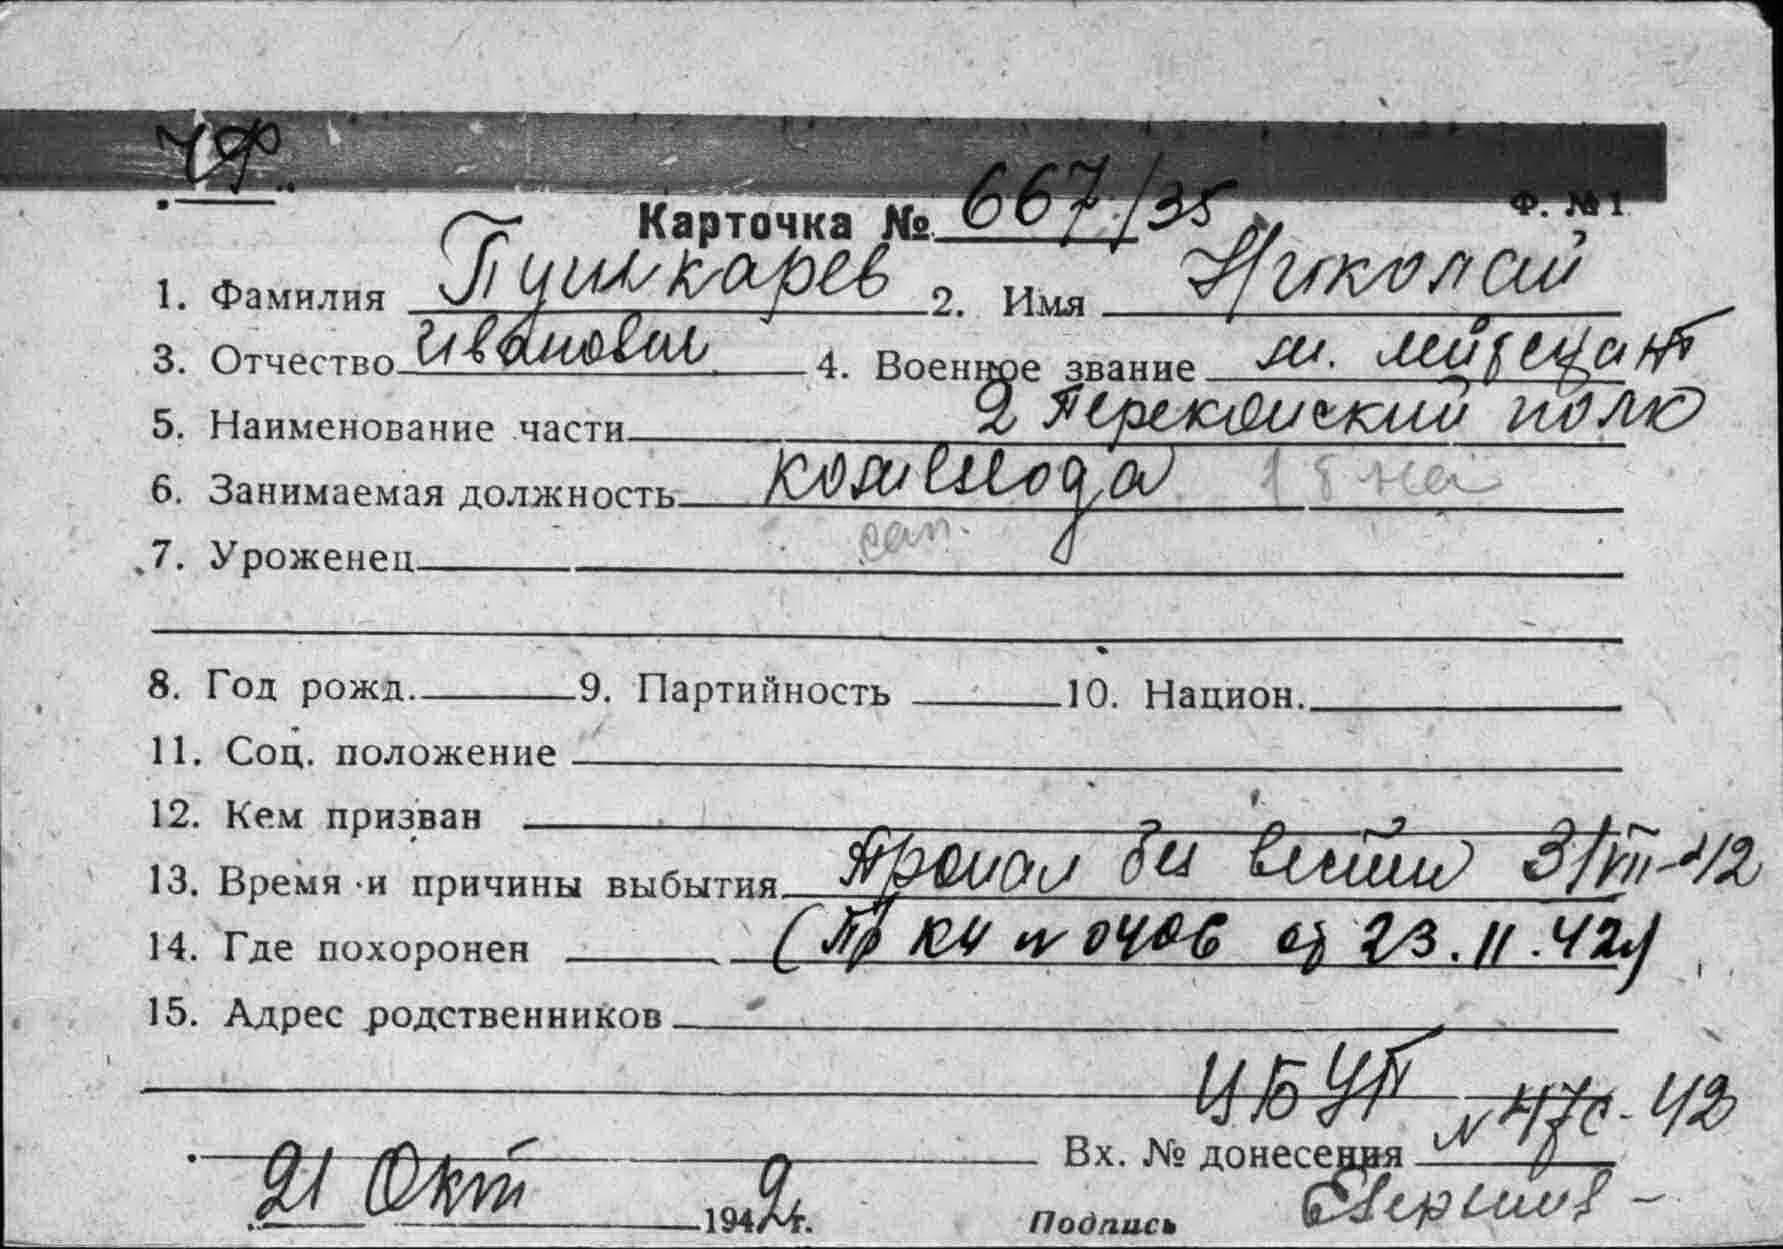 ЧФ
Ф. №1
Карточка № 667/35
1. Фамилия Пушкарев 2. Имя Николай
3. Отчество Иванович 4. Военное звание мл. лейтенант
5. Наименование части 2 Перекопский полк
6. Занимаемая должность комвзвода
сап.
7. Уроженец
8. Год рожд. 9. Партийность 10. Национ.
11. Соц. положение
12. Кем призван
13. Время и причины выбытия Пропал без вести 3/VII-42
14. Где похоронен (Пр КЧ № 0406 от 23.11.42г)
15. Адрес родственников
ЦБУП
Вх. № донесения № 47с-42
21 Окт 1942г.
Подпись